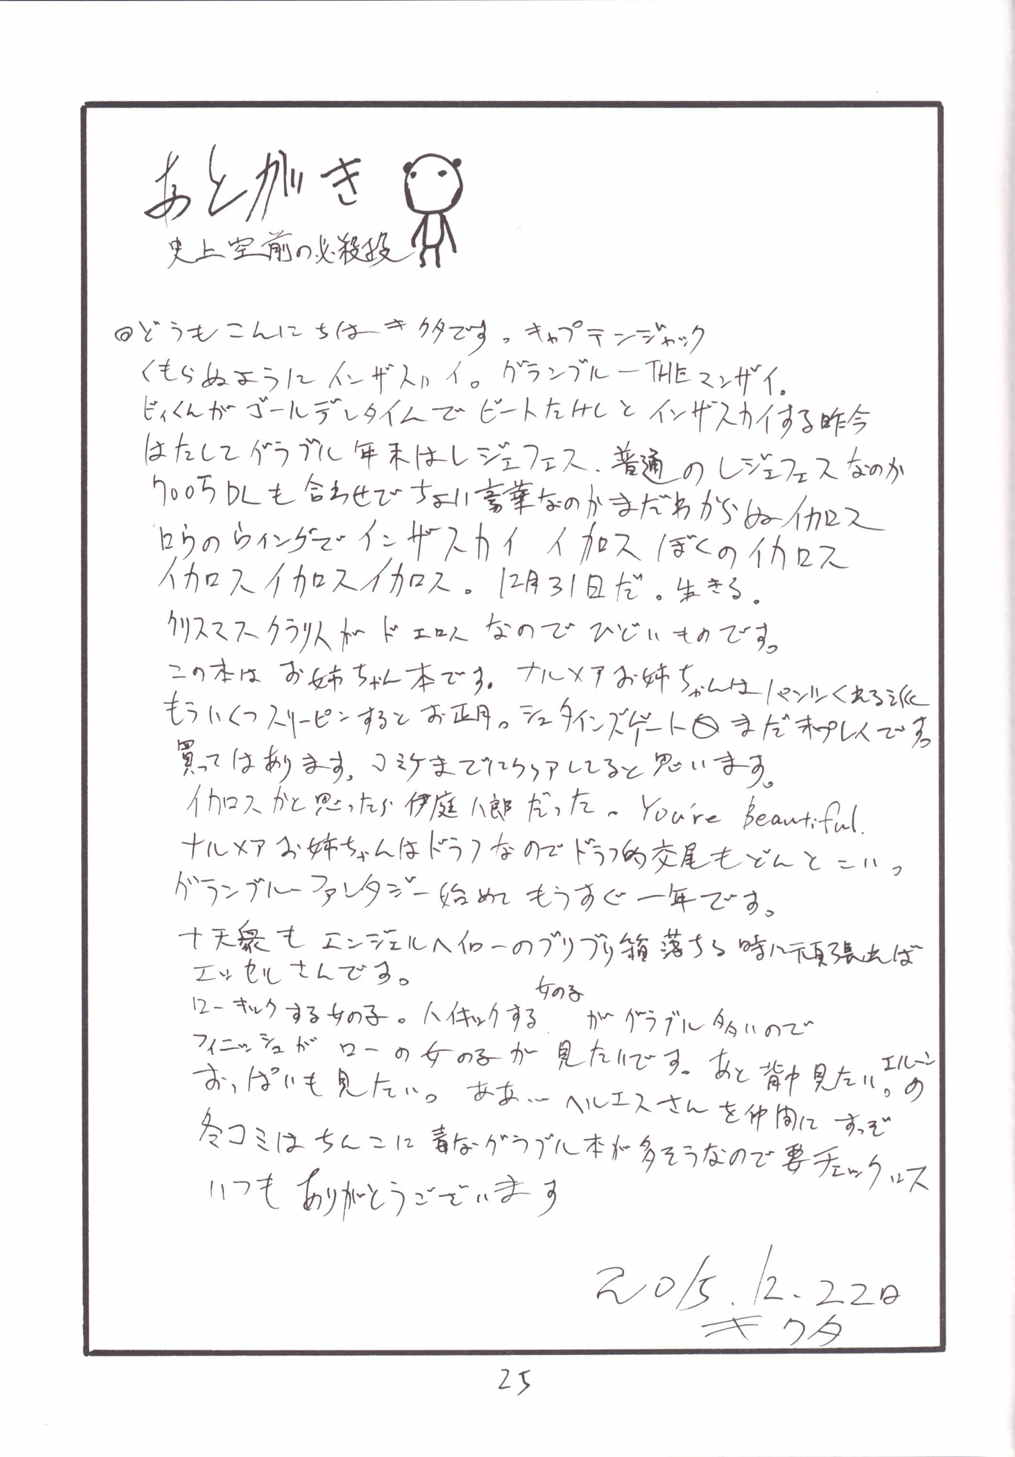 あとがき
史上空前の必殺技
◎どうもこんにちはーキクタです。キャプテンジャック
くもらぬようにインザスカイ。グランブルーTHEマンザイ。
ビィくんがゴールデンタイムでビートたけしとインザスカイする昨今
はたしてグラブル年末はレジェフェス、普通のレジェフェスなのか
700万DLも合わせてちょい豪華なのかまだわからぬイカロス
ロウのウィングでインザスカイ イカロス ぼくのイカロス
イカロスイカロスイカロス。12月31日だ。生きる。
クリスマスクラリスがドエロスなのでひどいものです。
この本はお姉ちゃん本です。ナルメアお姉ちゃんはパンツくれる派
もういくつスリーピンするとお正月。シュタインズゲート0まだ未プレイです。
買ってはあります。コミケまでにクリアしてると思います。
イカロスかと思ったら伊庭八郎だった〜You're Beautiful.
ナルメアお姉ちゃんはドラフなのでドラフ的交尾もどんとこいっ
グランブルーファンタジー始めてもうすぐ一年です。
十天衆もエンジェルヘイローのブリブリ箱落ちる時に頑張れば
エッセルさんです。
ローキックする女の子。ハイキックする女の子がグラブル多いので
フィニッシュがローの女の子が見たいです。あと背中見たい。エルーンの
おっぱいも見たい。ああ…ヘルエスさんを仲間にすっぞ
冬コミはちんこに毒なグラブル本が多そうなので要チェックロス
いつもありがとうございます
2015.12.22日
キクタ
25